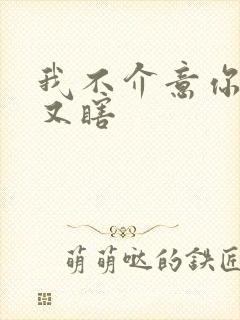 我不介意你
又瞎
萌萌哒的鉄匠